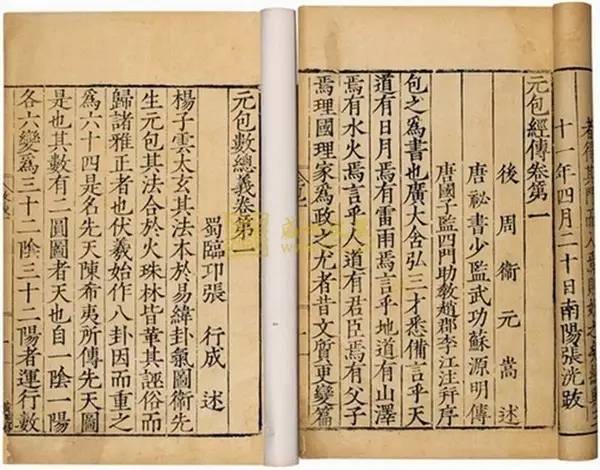 者得其門而入焉
十一年四月二十日南陽張洸跋
元包經傳卷第一
後周衞元嵩述
唐祕書少監武功蘇源明傳
唐國子監四門助教趙郡李江注并序
包之爲書也廣大含弘三才悉備言乎天
道有日月焉有雷雨焉言乎地道有山澤
焉有水火焉言乎人道有君臣焉有父子
焉理國理家爲政之尤者昔文質更變篇
元包數總義卷第一
蜀臨卭張行成述
楊子雲太玄其法本於易緯卦氣圖衞先
生元包其法合於火珠林皆革其誣俗而
歸諸雅正者也伏羲始作八卦因而重之
爲六十四是名先天陳希夷所傳先天圖
是也其數有二圓圖者天也自一陰一陽
各六變爲三十二陰三十二陽者運行數